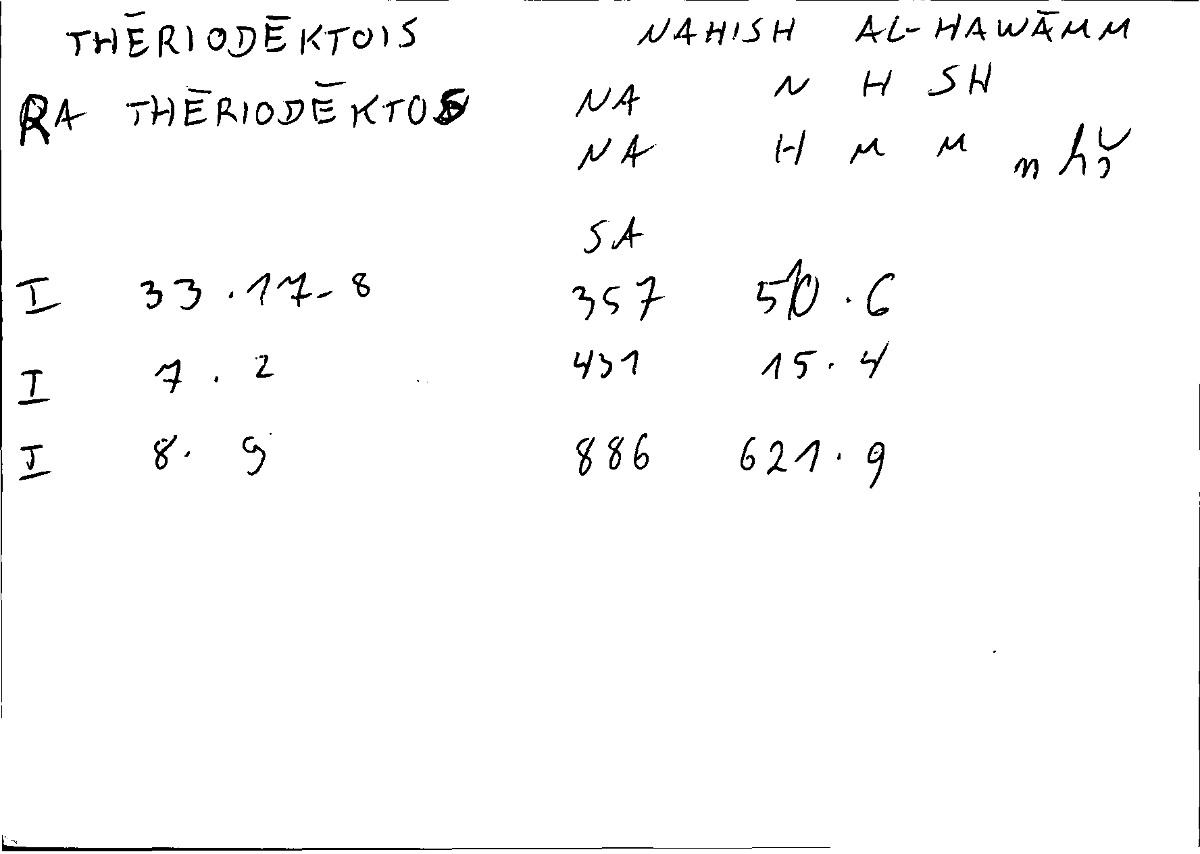 THĒRIODĒKTOIS NAHISH AL-HAWĀMM
RA THĒRIODĒKTOS NA N H SH
NA H M M n hš
SA
I 33.17-8 357 510.6
I 7.2 431 15.4
I 8.9 886 621.9